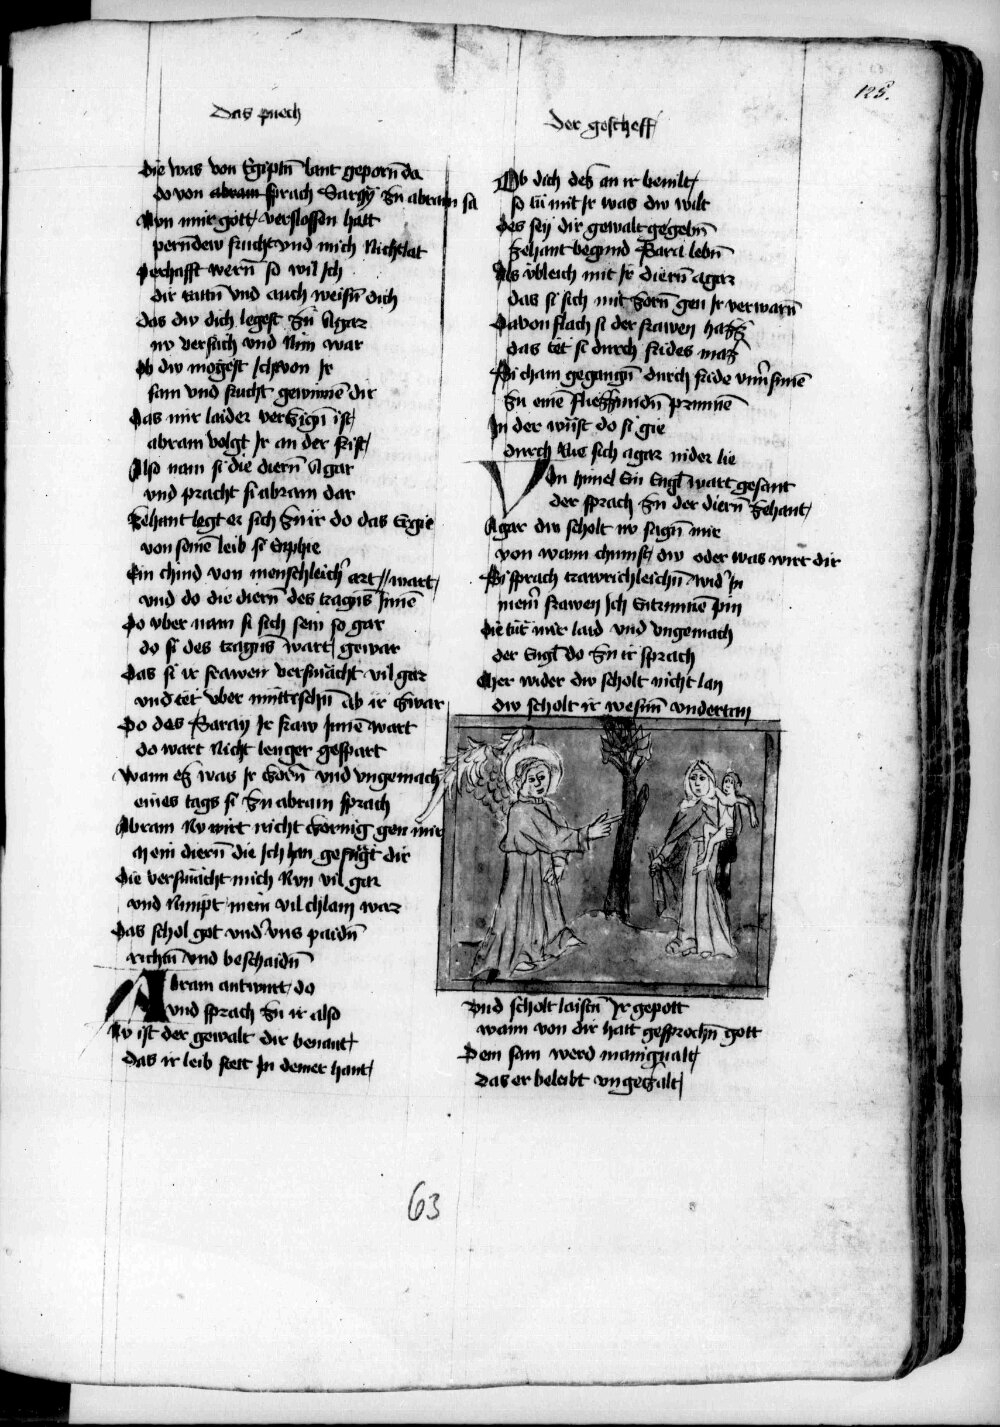 125.
Das puech
Der gescheff
die was von Egiptñ lant geporñ da
do von abram sprach Saray zu abram sa
Nun mir gott verslossen hatt
perndew frucht vnd mich Nicht lat
perhafft werñ so wil Ich
dir ratñ vnd auch weisñ dich
das dw dich legest zu Agar
nv versuch vnd Nim war
Ob dw mögest Icht von Ir
sam vnd frucht gewinnē dir
das mir laider verzigñ ist
abram volgt Ir an der frist
Also nam si die dierñ Agar
vnd pracht si abram dar
Zehant legt er sich zu ir do das Ergie
von seinē leib si Enphie
Ein chind von menschleicher art wart
vnd do die dierñ des tragñs Innē
Do vber nam si sich sein so gar
do si des tragñs wart gewar
das si ir frawen versmächt vil gar
vnd tet vber ab ir swar
Do des Saray Ir fraw Innē wart
do wart Nicht lenger gespart
wann ez was Ir zorñ vnd vngemach
eines tags si zu abram sprach
Abram Nv wirt nicht zornig gen mir
Mein dierñ die Ich han gefügt dir
die versmächt mich Nvn vil gar
vnd Nimpt mein vil chlain war
das schol got vnder vns paidñ
richtñ vnd beschaidñ
Abram antwurt do
vnd sprach zu ir also
Nv ist der gewalt dir benant
das ir leib stett In deiner hant
Ob dich dez an ir beuilt
so tü mit Ir was dw wilt
des sey dir gewalt gegebñ
zehant begund Sara lebñ
Als vbleich mit Ir dierñ agar
das si sich mit zorñ gen Ir verwarñ
Davon flach si der frawen hazz
das tet si durch fрides maz
Si cham gegangñ durch
zu einē fliezzundñ prunnē
In der wüst do si gie
durch Rue sich agar nider lie
Von himel Ein Engl wart gesant
der sprach zu der dierñ zehant
Agar dw scholt nv sagñ mir
von wann chumst dw oder was wirt dir
Si sprach trawrichleichñ wider In
meiner frawen Ich Entrunnē pin
die tüt mir laid vnd vngemach
der Engl do zu ir sprach
Cher wider dw scholt nicht lan
dw scholt ir wesñ vndertan
vnd scholt laistñ Ir gepott
wann von dir hatt gesprochñ gott
Dein sam werd manigualt
das er beleibt vngezalt
63